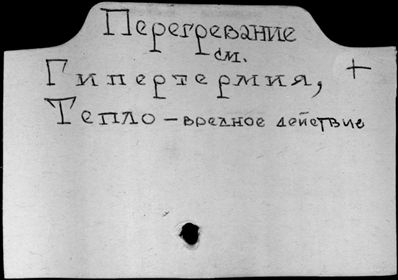 Перегревание
см.
Гипертермия, +
Тепло – вредное действие